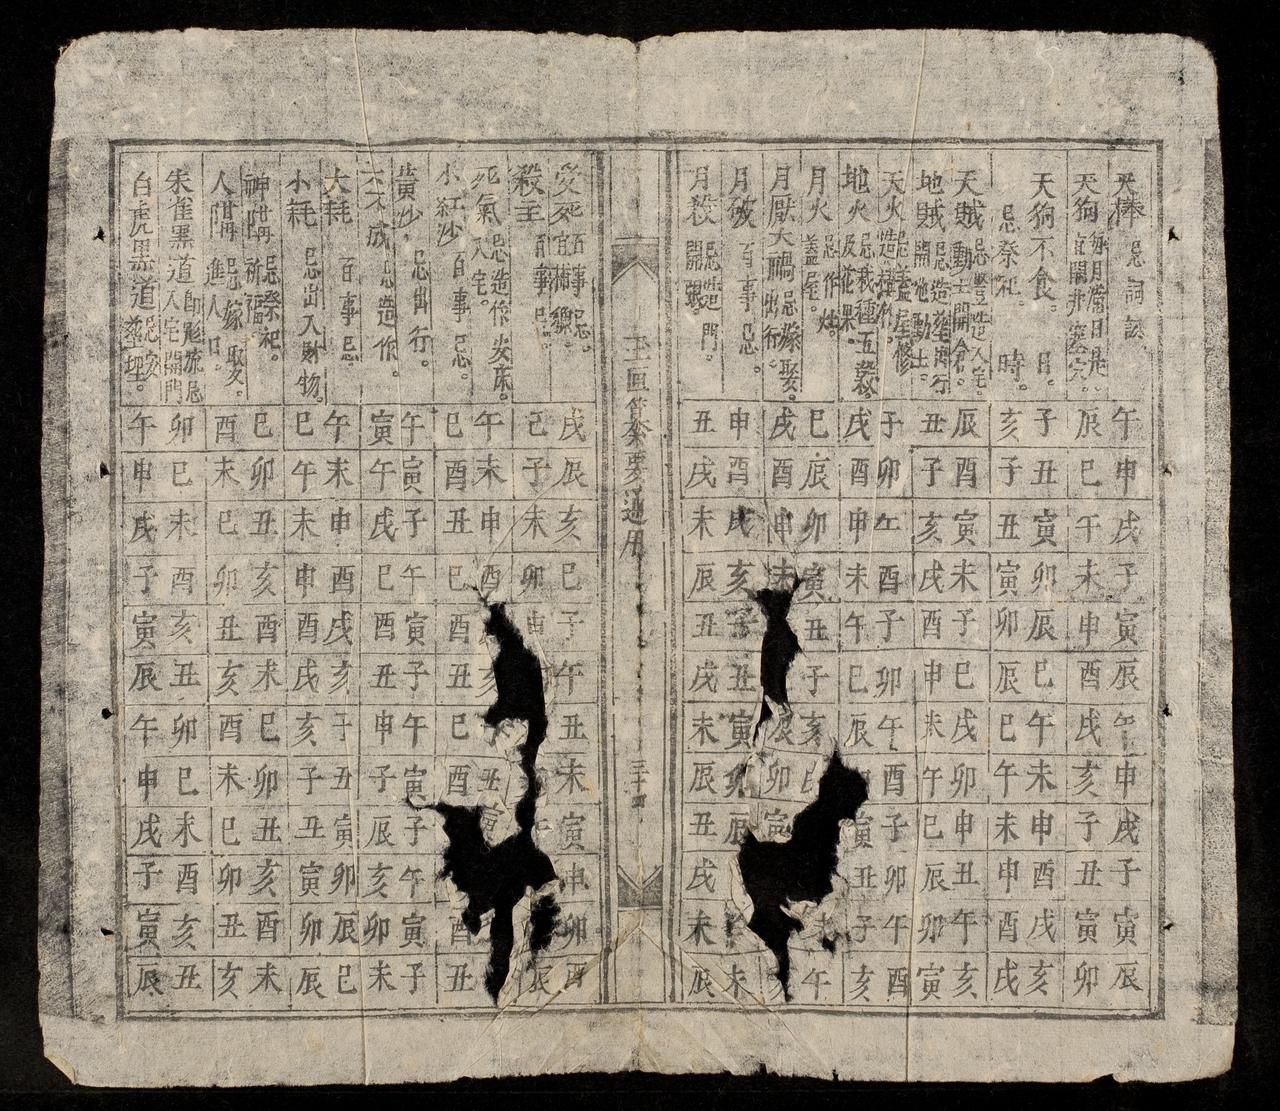 天棒 忌詞訟 午申戌子寅辰午申戌子寅辰
天狗 每月常日是 宜開井塞穴 辰巳午未申酉戌亥子丑寅卯
天狗不食。 日。 子丑寅卯辰巳午未申酉戌亥
忌祭祀 時。 亥子丑寅卯辰巳午未申酉戌
天賊 忌豎造入宅。動土開倉。 辰酉寅未子巳戌卯申丑午亥
地賊 忌造葬出行開池動土。 丑子亥戌酉申未午巳辰卯寅
天火 忌蓋屋修造 子卯午酉子卯午酉子卯午酉
地火 忌栽種五谷及花果。 戌酉申未午巳辰寅丑子亥
月火 忌作灶蓋屋。 巳辰卯寅丑子亥未午
月厭大禍 忌嫁娶出行。 戌酉申未辰卯寅
月破 百事忌。 申酉戌亥子丑寅卯辰未
月殺 忌造門。開張。 丑戌未辰丑戌未辰丑戌未辰
玉匣纂要通用 三十四
受死 百事忌。宜捕獵。 戌辰亥巳子午丑未寅申卯酉
殺主 百事忌。 巳子未卯申辰
死氣 忌造作安床。入宅。 午未申酉戌亥丑寅
小紅沙 百事忌。 巳酉丑巳酉丑巳酉酉丑
黃沙 忌出行。 午寅子午寅子午寅子午寅子
天不成 忌造作。 寅午戌巳酉丑申子辰亥卯未
大耗 百事忌。 午未申酉戌亥子丑寅卯辰巳
小耗 忌出入財物。 巳午未申酉戌亥子丑寅卯辰
神隔 忌祭祀。祈福。 巳卯丑亥酉未巳卯丑亥酉未
人隔 忌嫁娶。進人口。 酉未巳卯丑亥酉未巳卯丑亥
朱雀黑道 忌入宅開門 卯巳未酉亥丑卯巳未酉亥丑
白虎黑道 忌安葬埋。 午申戌子寅辰午申戌子寅辰